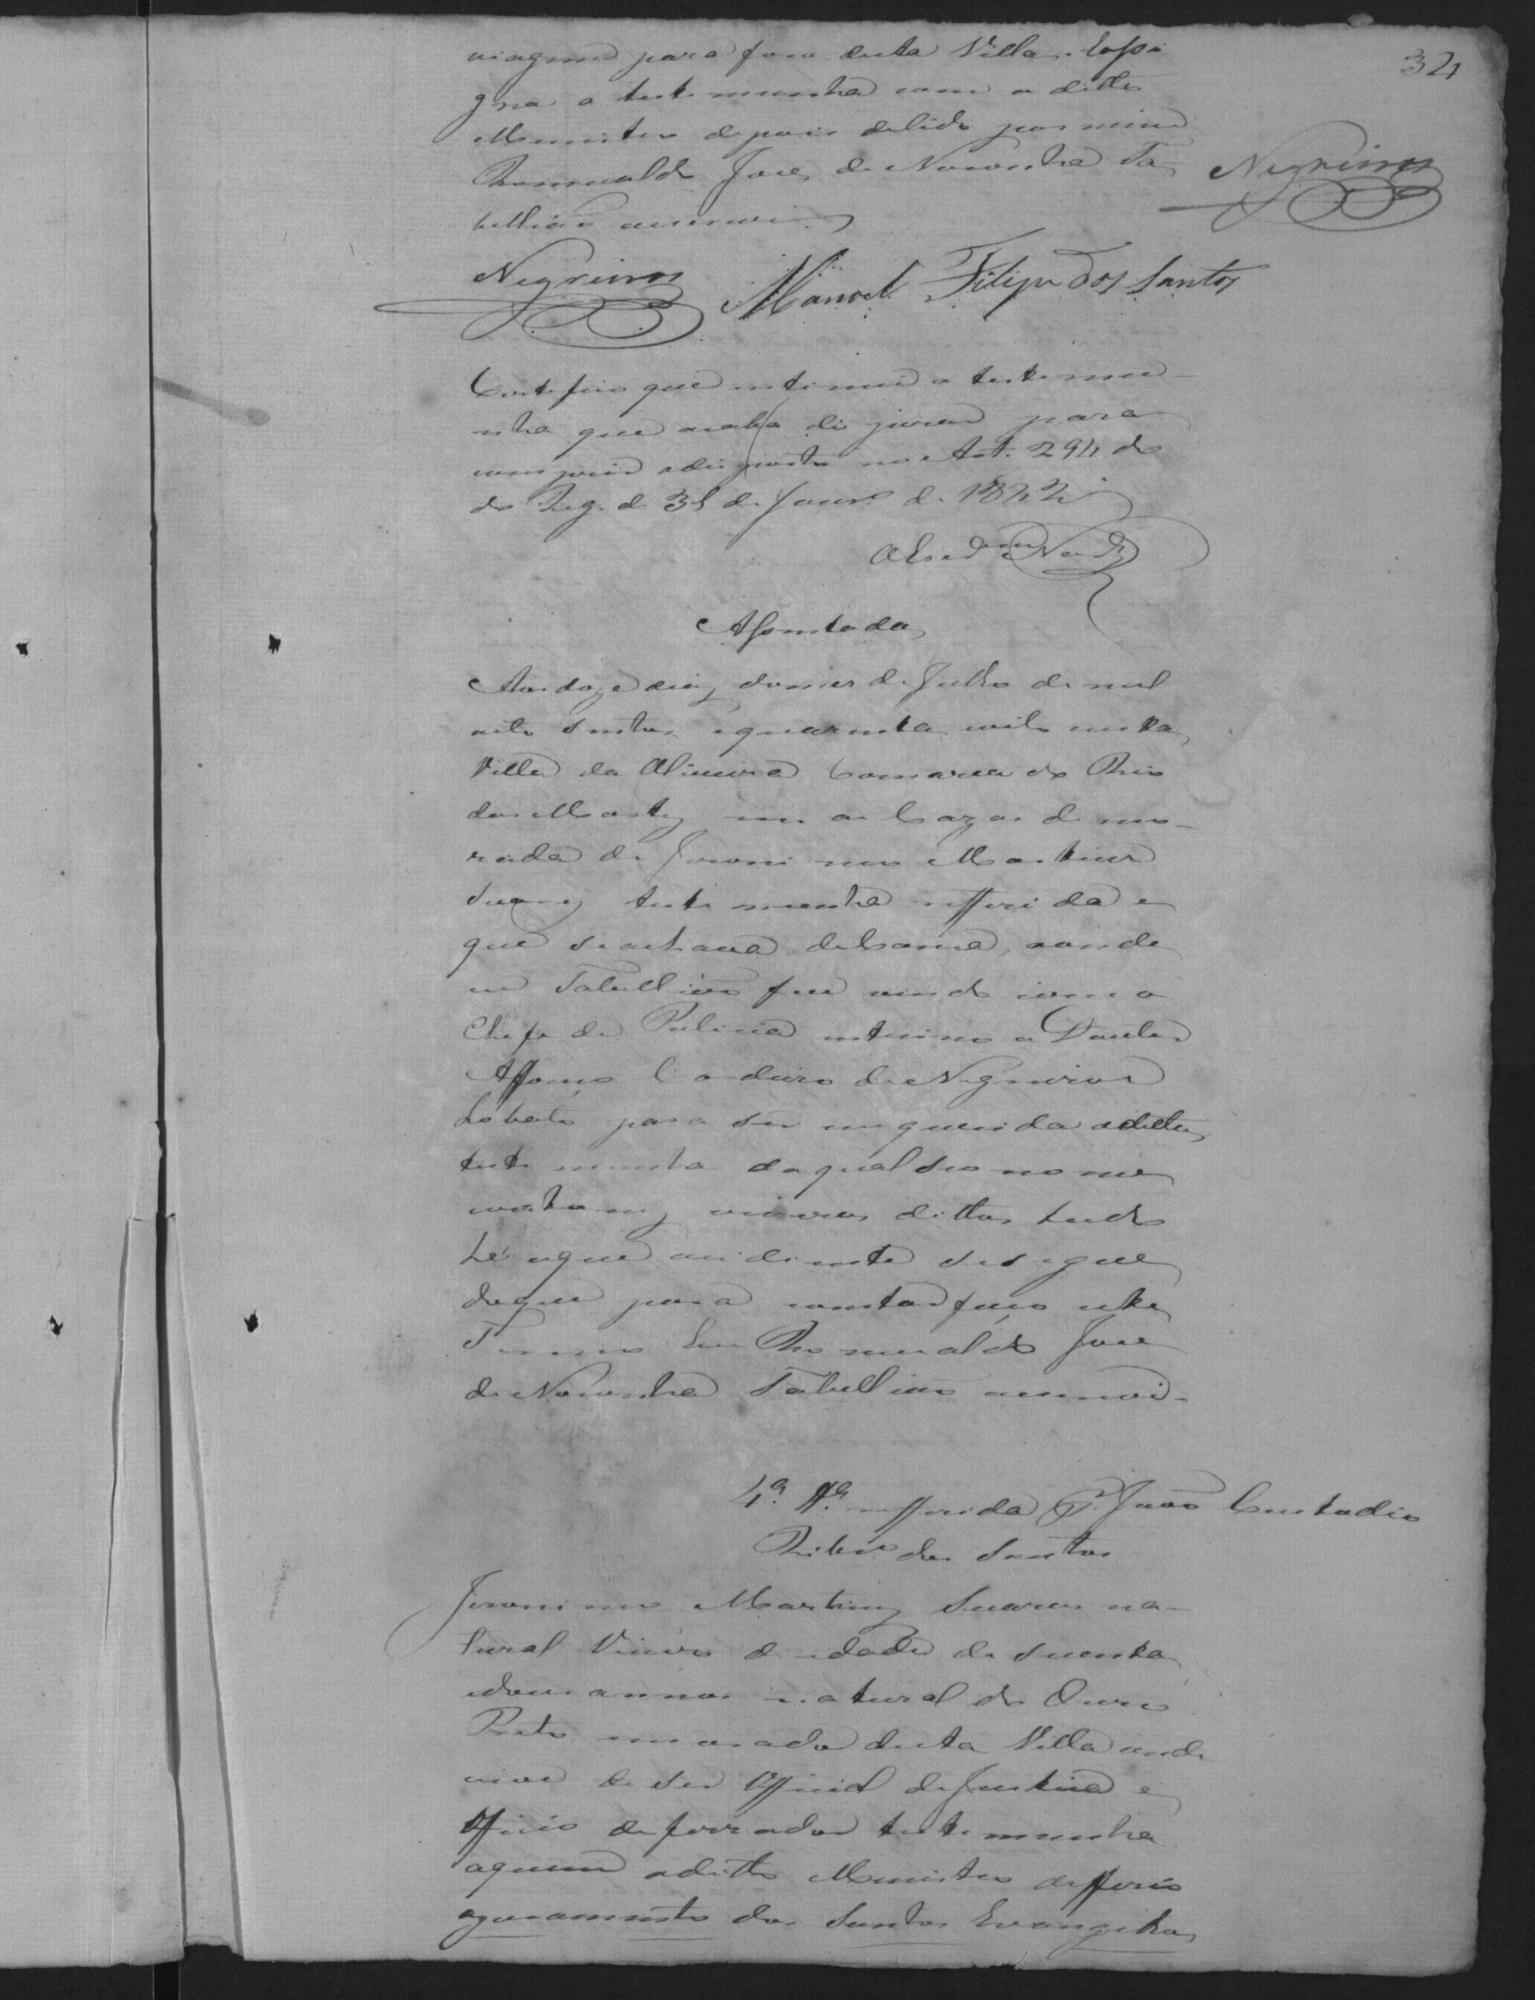 34
viagem para fora desta Villa. Eassi
gna a testemunha com o ditto
Ministro depois delido por mim
Romualdo José de Noronha Ta
bellião escrevi
Negreiros
Negreiros Manoel Filipe dos Santos
Certifico que intimei a testemu-
nha que acaba de jurar para
cumprir odisposto no Art. 294 do
do Reg. de 31 de Janrº de 1842
Assentada
Aos doze dias domes de Julho de mil
oito sentos equarenta eoito nesta
Villa da Oliveira Comarca do Rio
das Mortes em as Cazas de mo-
rada de Jeronimo Martins
Suares testemunha refferida e
que seachava deCama, aonde
eu Tabellião fui vindo com o
Chefe de Policia interino o Doutor
Affonço Cordeiro de Negreiros
Lobato para ser inquerida aditta
testemunha daqual seo nome
costumes dittos tudo
hé oque aodiante sesegue
doque para constar faço este
Termo Eu Romualdo José
de Noronha Tabellião escrevi-
4ª Tª refferida Pº João Custodio
Ribrº dos Santos
Jeronimo Martins Suares na-
tural Viuvo de idade de secenta
edous annos natural do Ouro
Preto morador desta Villa onde
vive de ser Official deJustiça e
Officio deferrador testemunha
aquem oditto Ministro defferio
ojuramento dos Santos Evangelhos